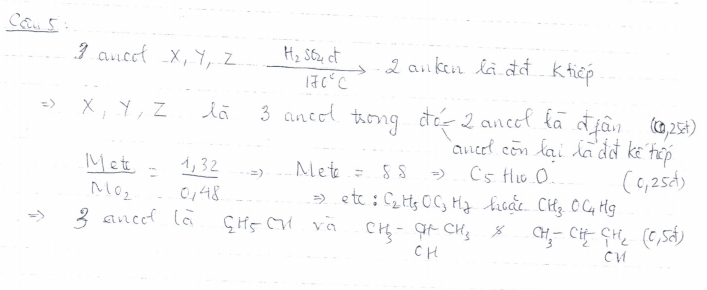 Câu 5:
3 ancol X, Y, Z H2SO4đ 170°C → 2 anken là đđ K tiếp
=> X, Y, Z là 3 ancol trong đó 2 ancol là đ phân (0,25đ)
ancol còn lại là đđ kế tiếp
Mete / MO2 = 1,32 / 0,48 => Mete = 88 => C5H12O (0,25đ)
=> ete: C2H5OC3H7 hoặc CH3OC4H9
=> 3 ancol là C2H5OH và CH3-CH-CH3 & CH3-CH2-CH2 (0,5đ)
OH OH